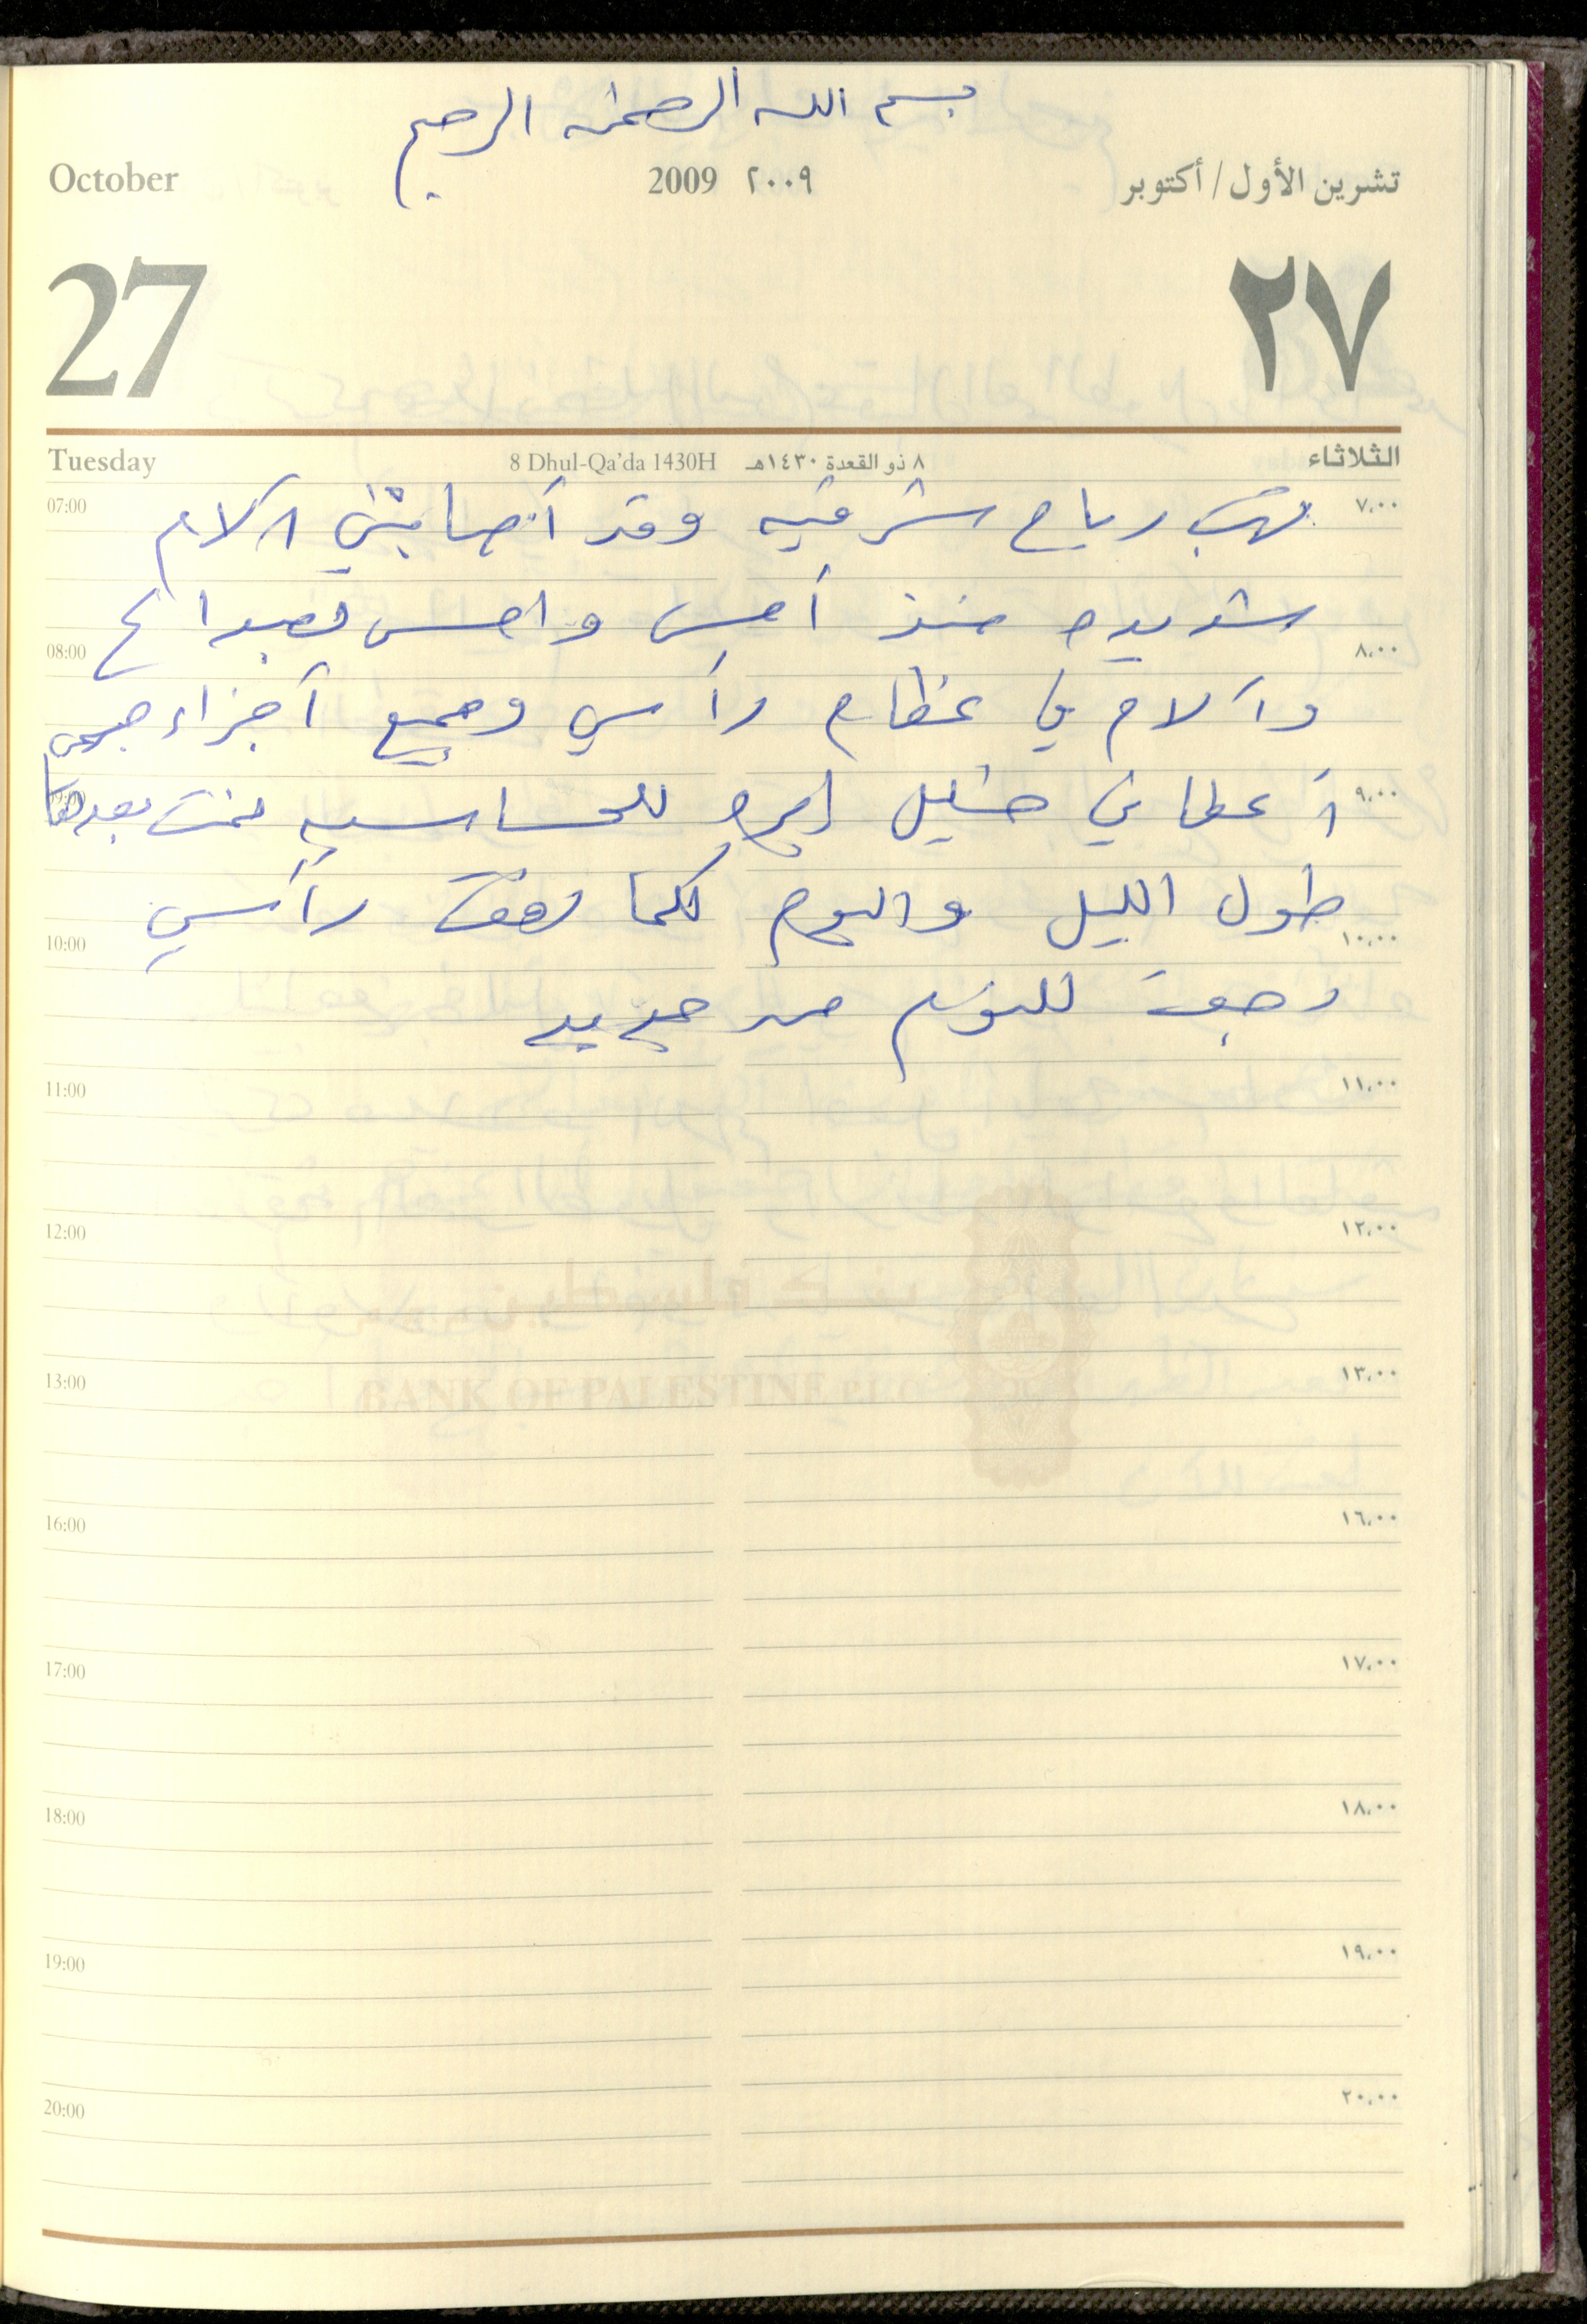 بسم الله الرحمن الرحيم
October 2009 ٢٠٠٩ تشرين الأول / أكتوبر
27 ٢٧
Tuesday 8 Dhul-Qa'da 1430H ٨ ذو القعدة ١٤٣٠هـ الثلاثاء
07:00 ٧،٠٠
تهب رياح شرقيه وقد أصابتني آلام
شديده منذ أمس واحس بصداع
08:00 ٨،٠٠
وآلام في عظام رأسي وجميع أجزاء جسمي
09:00 ٩،٠٠
أعطاني خليل إبره للحساسيه نمت بعدها
طول الليل واليوم كلما رفعت رأسي
10:00 ١٠،٠٠
رجعت للنوم من جديد
11:00 ١١،٠٠
12:00 ١٢،٠٠
13:00 ١٣،٠٠
BANK OF PALESTINE P.L.C
16:00 ١٦،٠٠
17:00 ١٧،٠٠
18:00 ١٨،٠٠
19:00 ١٩،٠٠
20:00 ٢٠،٠٠